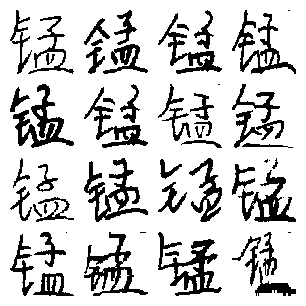 锰锰锰锰
锰锰锰锰
锰锰锰锰
锰锰锰锰